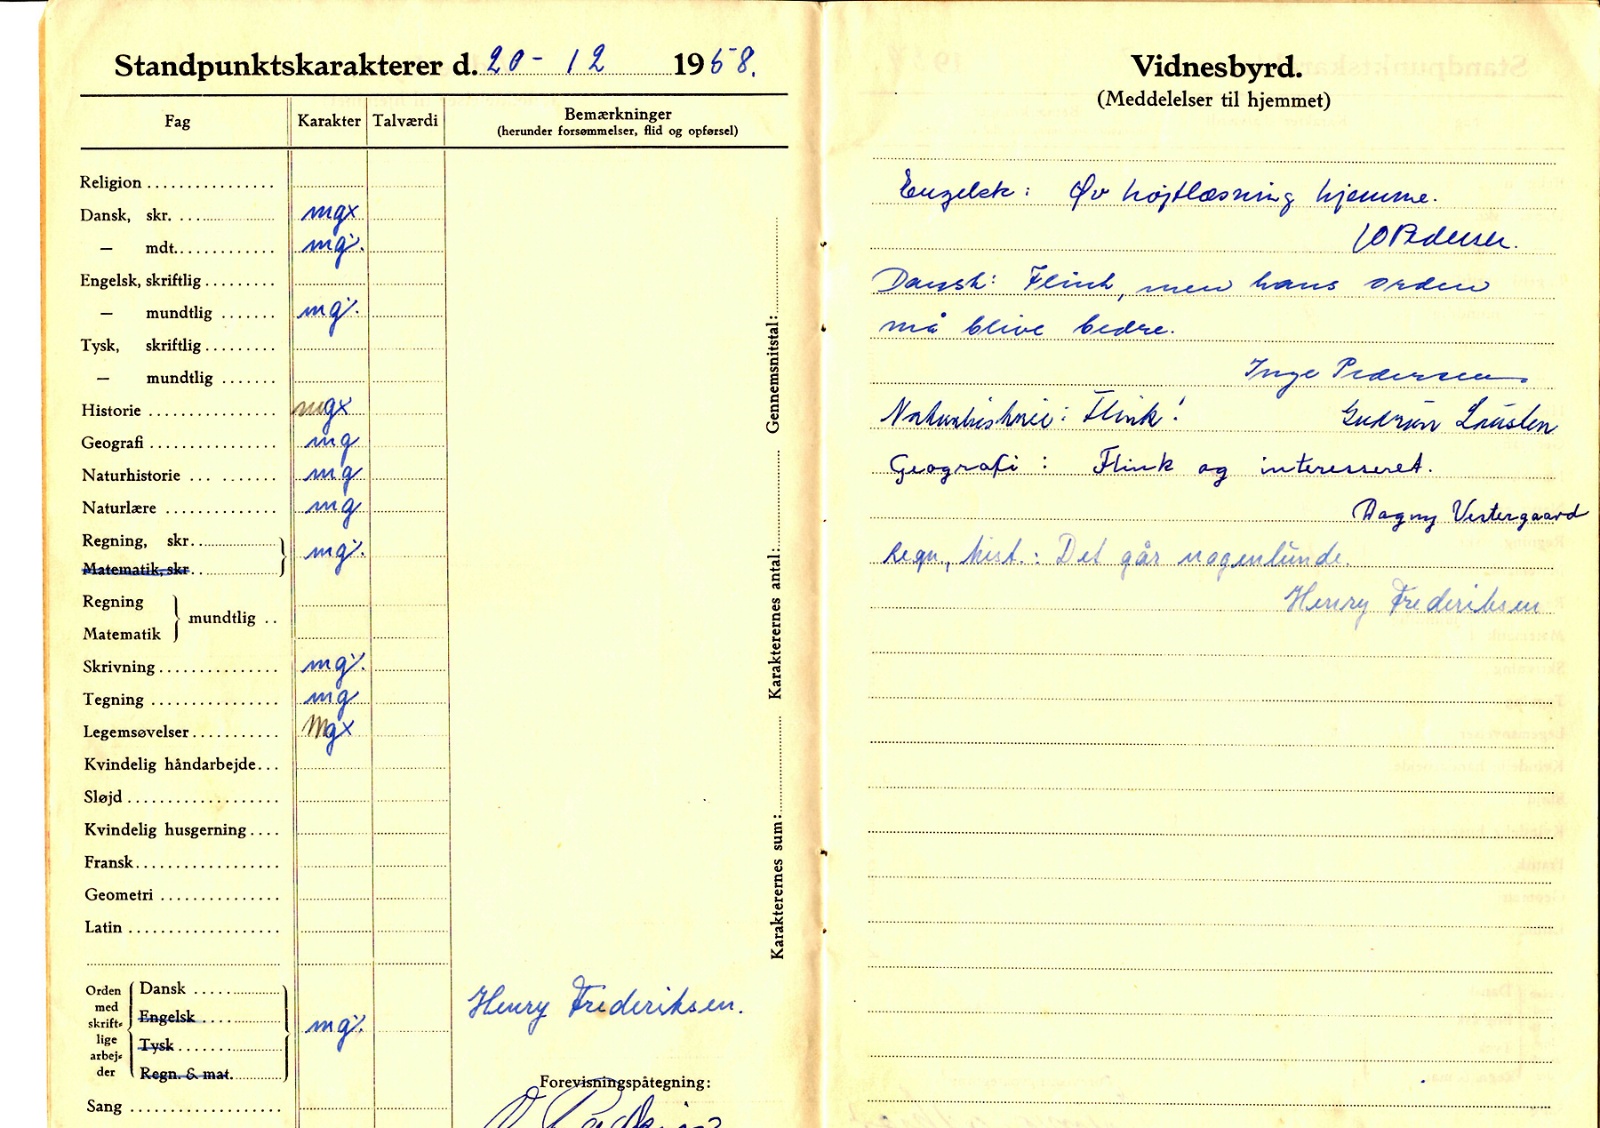 Standpunktskarakterer d. 20 - 12 1958.
Fag Karakter Talværdi Bemærkninger
(herunder forsømmelser, flid og opførsel)
Religion
Dansk, skr. mgx
— mdt. mg÷
Engelsk, skriftlig
— mundtlig mg÷
Tysk, skriftlig
— mundtlig
Historie mgx
Geografi mg
Naturhistorie mg
Naturlære mg
Regning, skr. mg÷
Matematik, skr.
Regning
mundtlig
Matematik
Skrivning mg÷
Tegning mg
Legemsøvelser mgx
Kvindelig håndarbejde
Sløjd
Kvindelig husgerning
Fransk
Geometri
Latin
Orden med skrift= lige arbej= der
Dansk
Engelsk
Tysk
Regn. & mat.
mg÷
Sang
Henry Frederiksen.
Forevisningspåtegning:
Karakterernes sum: Karakterernes antal: Gennemsnitstal:
Vidnesbyrd.
(Meddelelser til hjemmet)
Engelsk: Øv højtlæsning hjemme.
Pedersen.
Dansk: Flink, men hans orden
må blive bedre.
Inge Pedersen.
Naturhistorie: Flink! Gudrun Lausten
Geografi: Flink og interesseret.
Dagny Vestergaard
Regn., hist.: Det går nogenlunde.
Henry Frederiksen